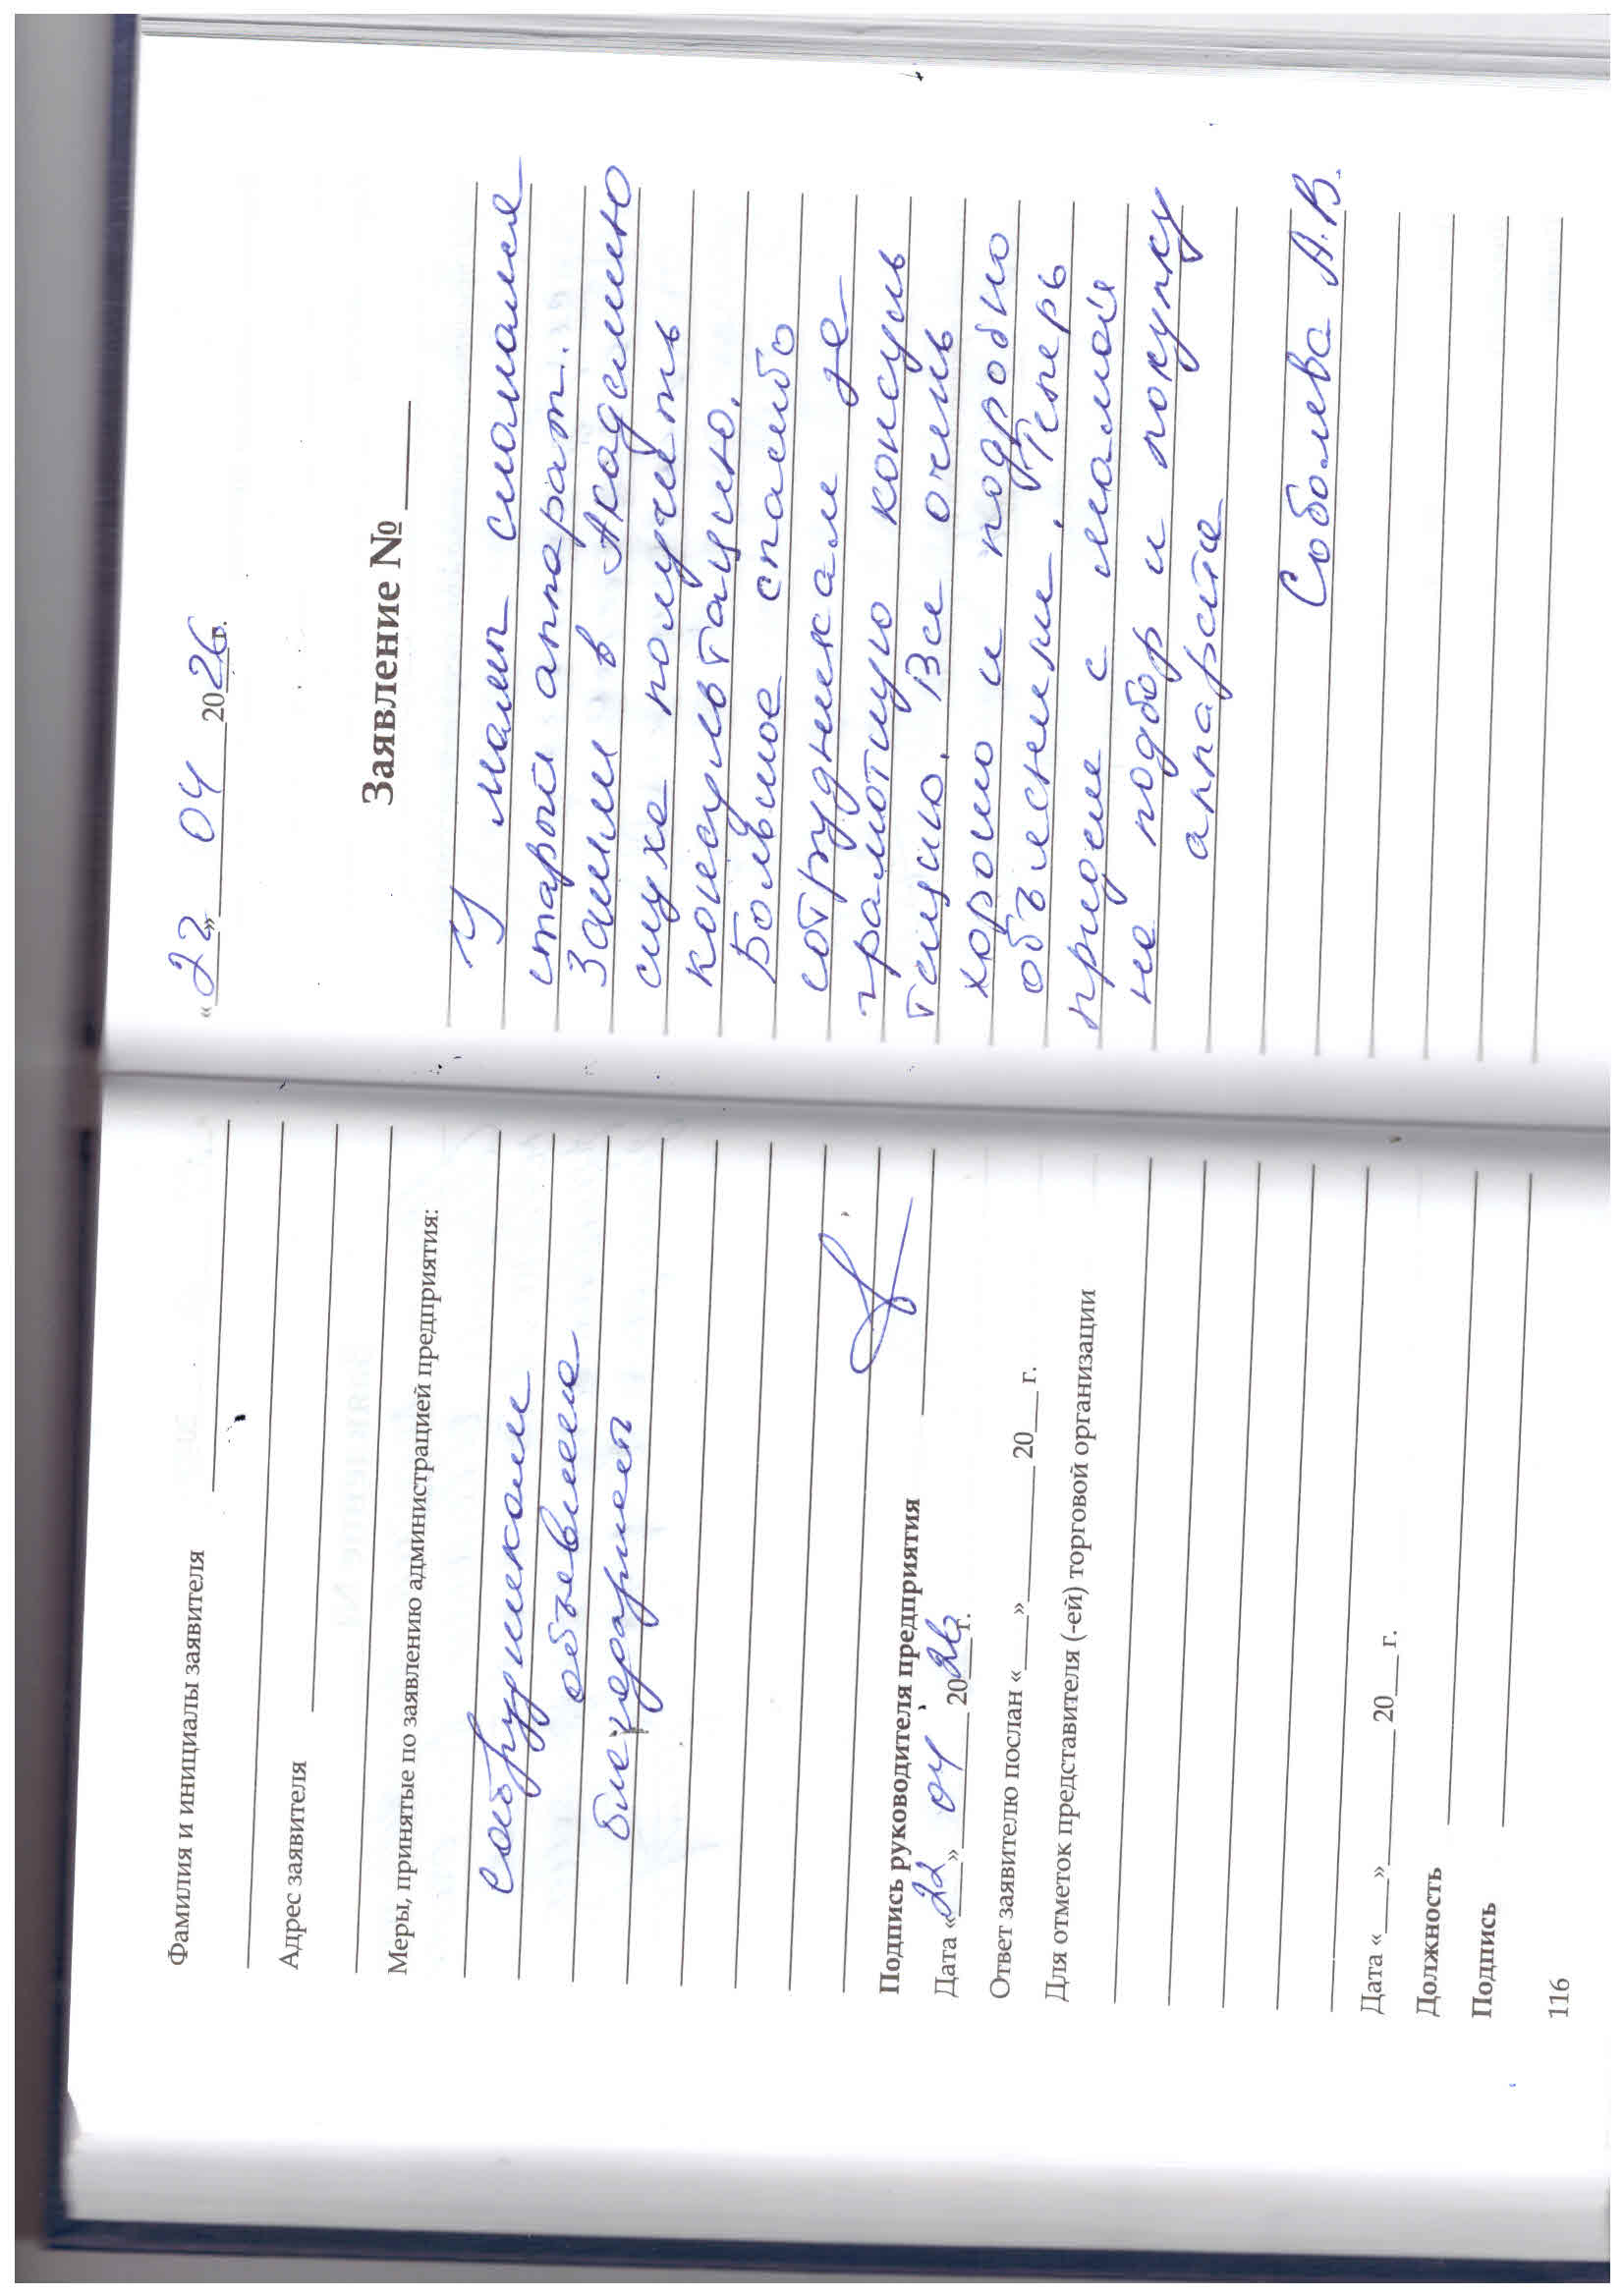 Фамилия и инициалы заявителя
Адрес заявителя
Меры, принятые по заявлению администрацией предприятия:
сотрудникам
объявлена
благодарность
Подпись руководителя предприятия
Дата «22» 04 2026г.
Ответ заявителю послан «___» ________ 20___ г.
Для отметок представителя (-ей) торговой организации
Дата «___» ________ 20___ г.
Должность
Подпись
116
«22» 04 2026г.
Заявление №
У мамы сломался
старый аппарат.
Зашли в Академию
слуха получить
консультацию.
Большое спасибо
сотрудникам за
грамотную консуль
тацию. Все очень
хорошо и подробно
объяснили. Теперь
придем с мамой
на подбор и покупку
аппарата
Соболева А.В.